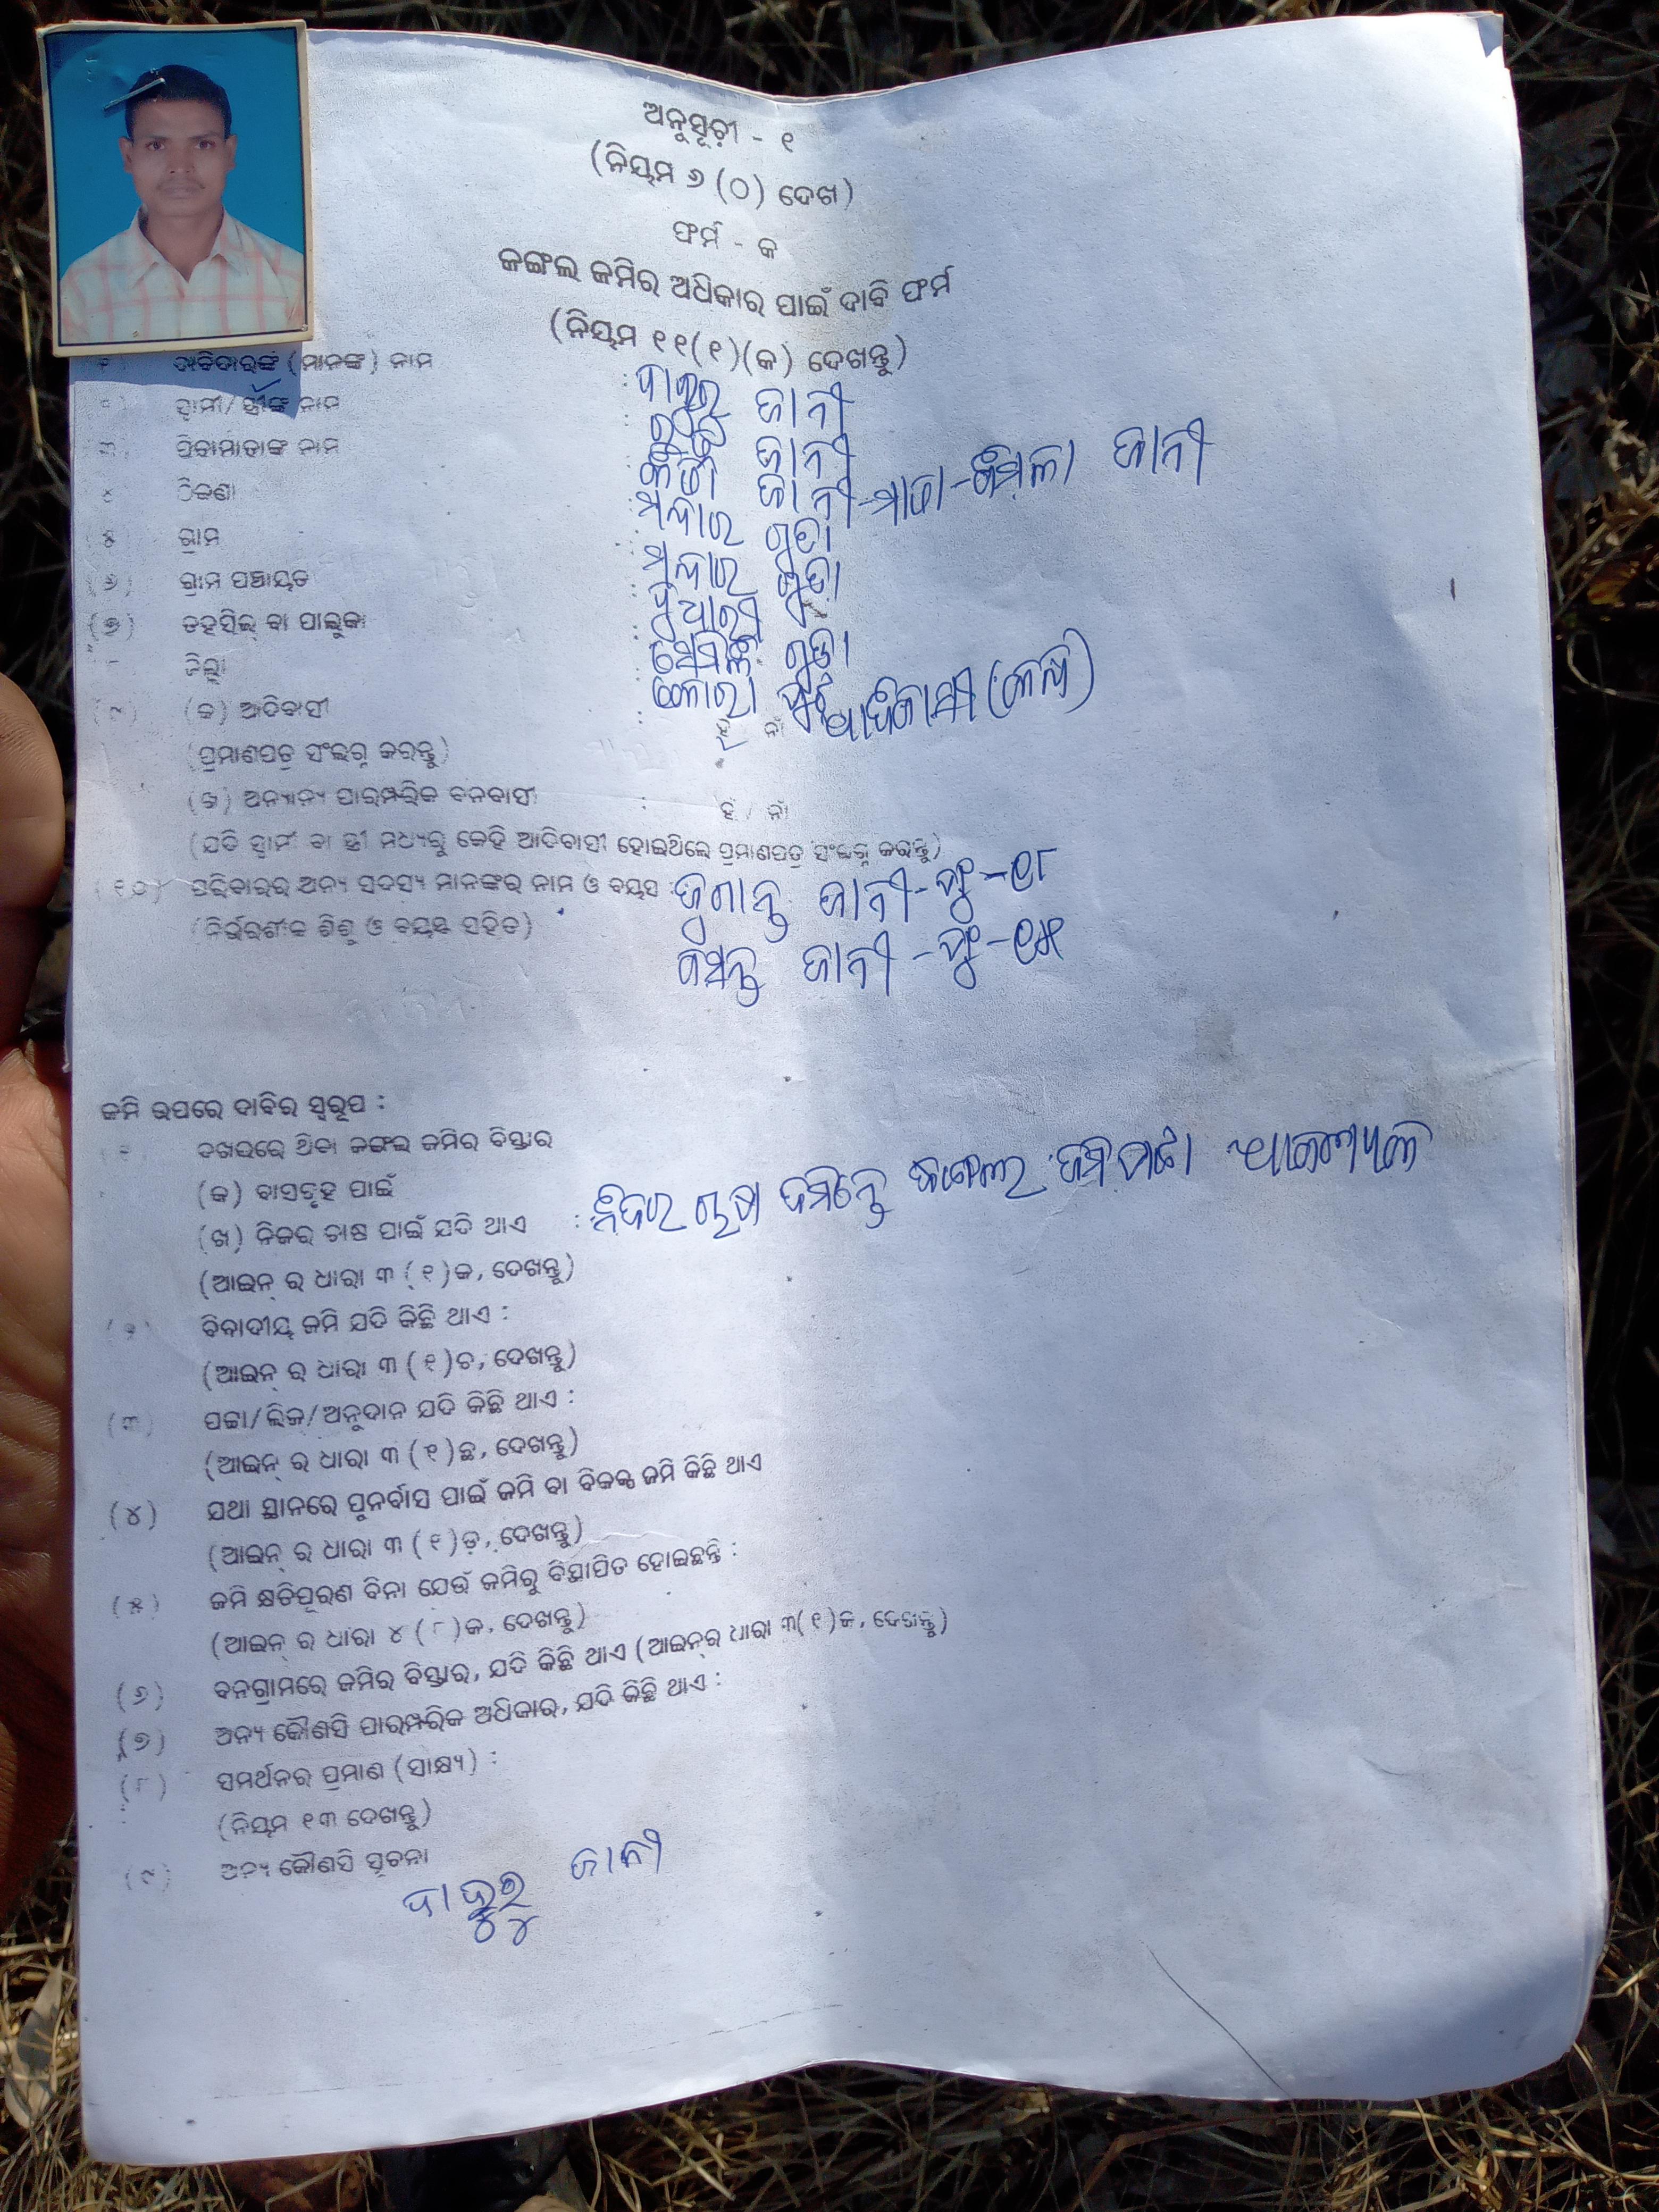 ଅନୁସୂଚୀ - ୧
(ନିୟମ ୬ (୦) ଦେଖ)
ଫର୍ମ - କ
ଜଙ୍ଗଲ ଜମିର ଅଧିକାର ପାଇଁ ଦାବି ଫର୍ମ
(ନିୟମ ୧୧(୧)(କ) ଦେଖନ୍ତୁ)
ଦାବିଦାରଙ୍କ (ମାନଙ୍କ) ନାମ : ଜାନୀ
ସ୍ୱାମୀ/ସ୍ତ୍ରୀଙ୍କ ନାମ ଜାନୀ
୩) ପିତାମାତାଙ୍କ ନାମ ଜାନୀ-ମାତା- ଜାନୀ
୪ ଠିକଣା : ଗୁଡା
(୫) ଗ୍ରାମ : ଗୁଡା
(୬) ଗ୍ରାମ ପଞ୍ଚାୟତ
(୭) ତହସିଲ୍ ବା ତାଲୁକା ଗୁଡା
ଜିଲ୍ଲା କୋରା ପୁଟ
(୯) (କ) ଆଦିବାସୀ : ହଁ ନାଁ ଆଦିବାସୀ
(ପ୍ରମାଣପତ୍ର ସଂଲଗ୍ନ କରନ୍ତୁ)
(ଖ) ଅନ୍ୟାନ୍ୟ ପାରମ୍ପରିକ ବନବାସୀ : ହଁ / ନାଁ
(ଯଦି ସ୍ୱାମୀ ବା ସ୍ତ୍ରୀ ମଧ୍ୟରୁ କେହି ଆଦିବାସୀ ହୋଇଥିଲେ ପ୍ରମାଣପତ୍ର ସଂଲଗ୍ନ କରନ୍ତୁ)
(୧୦) ପରିବାରର ଅନ୍ୟ ସଦସ୍ୟ ମାନଙ୍କର ନାମ ଓ ବୟସ : ଜାନୀ-ପୁଂ-୧୮
(ନିର୍ଭରଶୀଳ ଶିଶୁ ଓ ବୟସ୍କ ସହିତ) ବସନ୍ତ ଜାନୀ-ପୁଂ-୧୫
ଜମି ଉପରେ ଦାବିର ସ୍ୱରୂପ :
ଦଖଲରେ ଥିବା ଜଙ୍ଗଲ ଜମିର ବିସ୍ତାର
(କ) ବାସଗୃହ ପାଇଁ
(ଖ) ନିଜର ଚାଷ ପାଇଁ ଯଦି ଥାଏ :
(ଆଇନ୍ ର ଧାରା ୩ (୧)କ, ଦେଖନ୍ତୁ)
(୨) ବିବାଦୀୟ ଜମି ଯଦି କିଛି ଥାଏ :
(ଆଇନ୍ ର ଧାରା ୩ (୧)ଚ, ଦେଖନ୍ତୁ)
(୩) ପଟ୍ଟା/ଲିଜ/ଅନୁଦାନ ଯଦି କିଛି ଥାଏ :
(ଆଇନ୍ ର ଧାରା ୩ (୧)ଛ, ଦେଖନ୍ତୁ)
(୪) ଯଥା ସ୍ଥାନରେ ପୁନର୍ବାସ ପାଇଁ ଜମି ବା ବିକଳ୍ପ ଜମି କିଛି ଥାଏ
(ଆଇନ୍ ର ଧାରା ୩ (୧)ଡ଼, ଦେଖନ୍ତୁ)
(୫) ଜମି କ୍ଷତିପୂରଣ ବିନା ଯେଉଁ ଜମିରୁ ବିସ୍ଥାପିତ ହୋଇଛନ୍ତି :
(ଆଇନ୍ ର ଧାରା ୪ (୮)କ, ଦେଖନ୍ତୁ)
(୬) ବନଗ୍ରାମରେ ଜମିର ବିସ୍ତାର, ଯଦି କିଛି ଥାଏ (ଆଇନ୍‌ର ଧାରା ୩(୧)ଜ, ଦେଖନ୍ତୁ)
(୭) ଅନ୍ୟ କୌଣସି ପାରମ୍ପରିକ ଅଧିକାର, ଯଦି କିଛି ଥାଏ :
(୮) ସମର୍ଥନର ପ୍ରମାଣ (ସାକ୍ଷ୍ୟ) :
(ନିୟମ ୧୩ ଦେଖନ୍ତୁ)
(୯) ଅନ୍ୟ କୌଣସି ସୂଚନା
ଜାନୀ